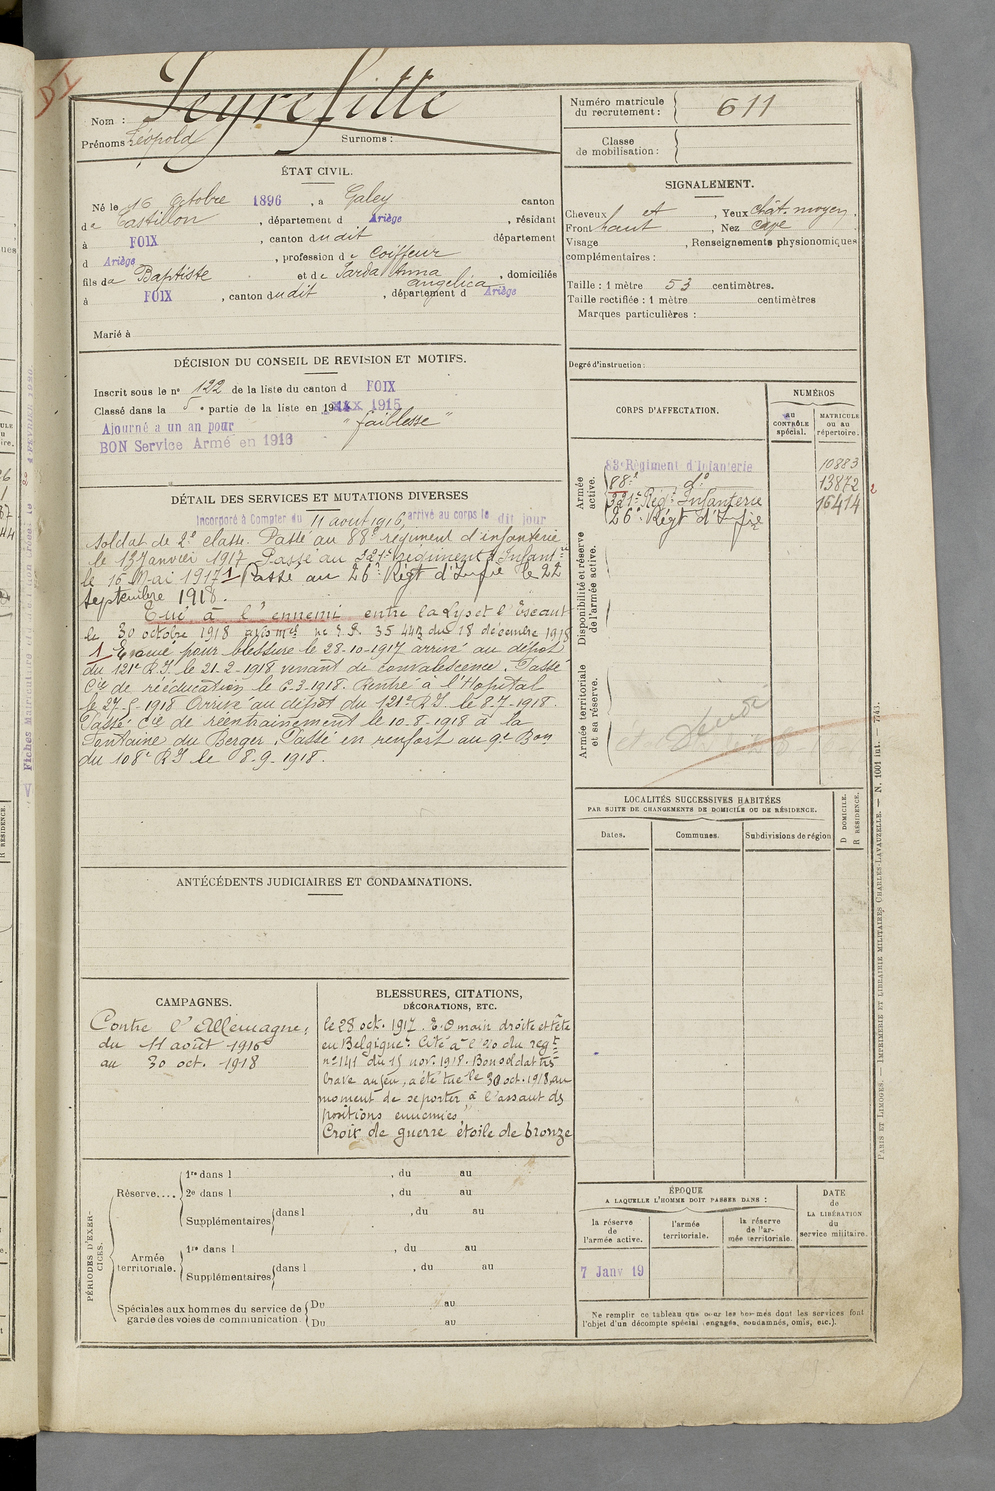 Nom : Peyrefitte
Prénoms Léopold Surnoms :
Numéro matricule du recrutement : 611
Classe de mobilisation :
ÉTAT CIVIL.
Né le 16 octobre 1896, a Galey canton
de Castillon, département d Ariège, résidant
à FOIX, canton dudit département
d Ariège, profession de coiffeur
fils de Baptiste et de Sarda Anna Angelica, domiciliés
à FOIX, canton dudit, département d Ariège
Marié à
SIGNALEMENT.
Cheveux et, Yeux chât. moyen.
Front haut, Nez cave
Visage, Renseignements physionomiques
complémentaires :
Taille : 1 mètre 53 centimètres.
Taille rectifiée : 1 mètre centimètres
Marques particulières :
Degré d'instruction :
DÉCISION DU CONSEIL DE REVISION ET MOTIFS.
Inscrit sous le n° 122 de la liste du canton d FOIX
Classé dans la 5e partie de la liste en 19 1915
Ajourné a un an pour "faiblesse"
BON Service Armé en 1916
DÉTAIL DES SERVICES ET MUTATIONS DIVERSES
Incorporé à Compter du 11 août 1916, arrivé au corps le dit jour
soldat de 2e classe. Passé au 88e régiment d'infanterie
le 13 janvier 1917 Passé au 221e régiment d'Infant
le 16 Mai 1917 1 Passé au 26e Régt d'Infie le 22
septembre 1918.
Tué à l'ennemi entre la Lys et l'Escaut
le 30 octobre 1918 avis mel n° 35 443 du 18 décembre 1918
1 Evacué pour blessure le 28-10-1917 arrivé au dépôt
du 121e R.I. le 21-2-1918 venant de convalescence. Passé
Cie de rééducation le 6-3-1918. Rentré à l'Hopital
le 27-5-1918 Arrivé au dépôt du 121e R.I. le 8-7-1918.
Passé Cie de réentrainement le 10-8-1918 à la
Fontaine du Berger. Passé en renfort au 9e Bon
du 108e R.I le 8-9-1918.
CORPS D'AFFECTATION.
NUMÉROS
au CONTRÔLE spécial.
MATRICULE ou au répertoire.
Armée active.
83e Régiment d'Infanterie 10883
88e d° 13872
221e Régt Infanterie 16414
26e Régt d'Infie
Disponibilité et réserve de l'armée active.
Armée territoriale et sa réserve.
LOCALITÉS SUCCESSIVES HABITÉES
PAR SUITE DE CHANGEMENTS DE DOMICILE OU DE RÉSIDENCE.
D DOMICILE.
R RÉSIDENCE.
Dates.
Communes.
Subdivisions de région
ANTÉCÉDENTS JUDICIAIRES ET CONDAMNATIONS.
CAMPAGNES.
Contre l'Allemagne,
du 11 août 1916
au 30 oct. 1918
BLESSURES, CITATIONS,
DÉCORATIONS, ETC.
le 28 oct. 1917. E.O main droite et tête
en Belgique. Cité à l'o/o du régt
n° 141 du 15 nov. 1918. Bon soldat très
brave au feu, a été tué le 30 oct. 1918, au
moment de se porter à l'assaut des
positions ennemies"
Croix de guerre étoile de bronze
PÉRIODES D'EXERCICES.
Réserve....
1re dans l , du au
2e dans l , du au
Supplémentaires dans l , du au
Armée territoriale.
1re dans l , du au
Supplémentaires dans l , du au
Spéciales aux hommes du service de garde des voies de communication
Du au
Du au
ÉPOQUE
A LAQUELLE L'HOMME DOIT PASSER DANS :
la réserve de l'armée active.
l'armée territoriale.
la réserve de l'armée territoriale.
DATE de LA LIBÉRATION du service militaire.
7 Janv 19
Ne remplir ce tableau que pour les hommes dont les services font
l'objet d'un décompte spécial (engagés, condamnés, omis, etc.).
PARIS ET LIMOGES. — IMPRIMERIE ET LIBRAIRIE MILITAIRES CHARLES-LAVAUZELLE. — N. 1001 int. — 7743.